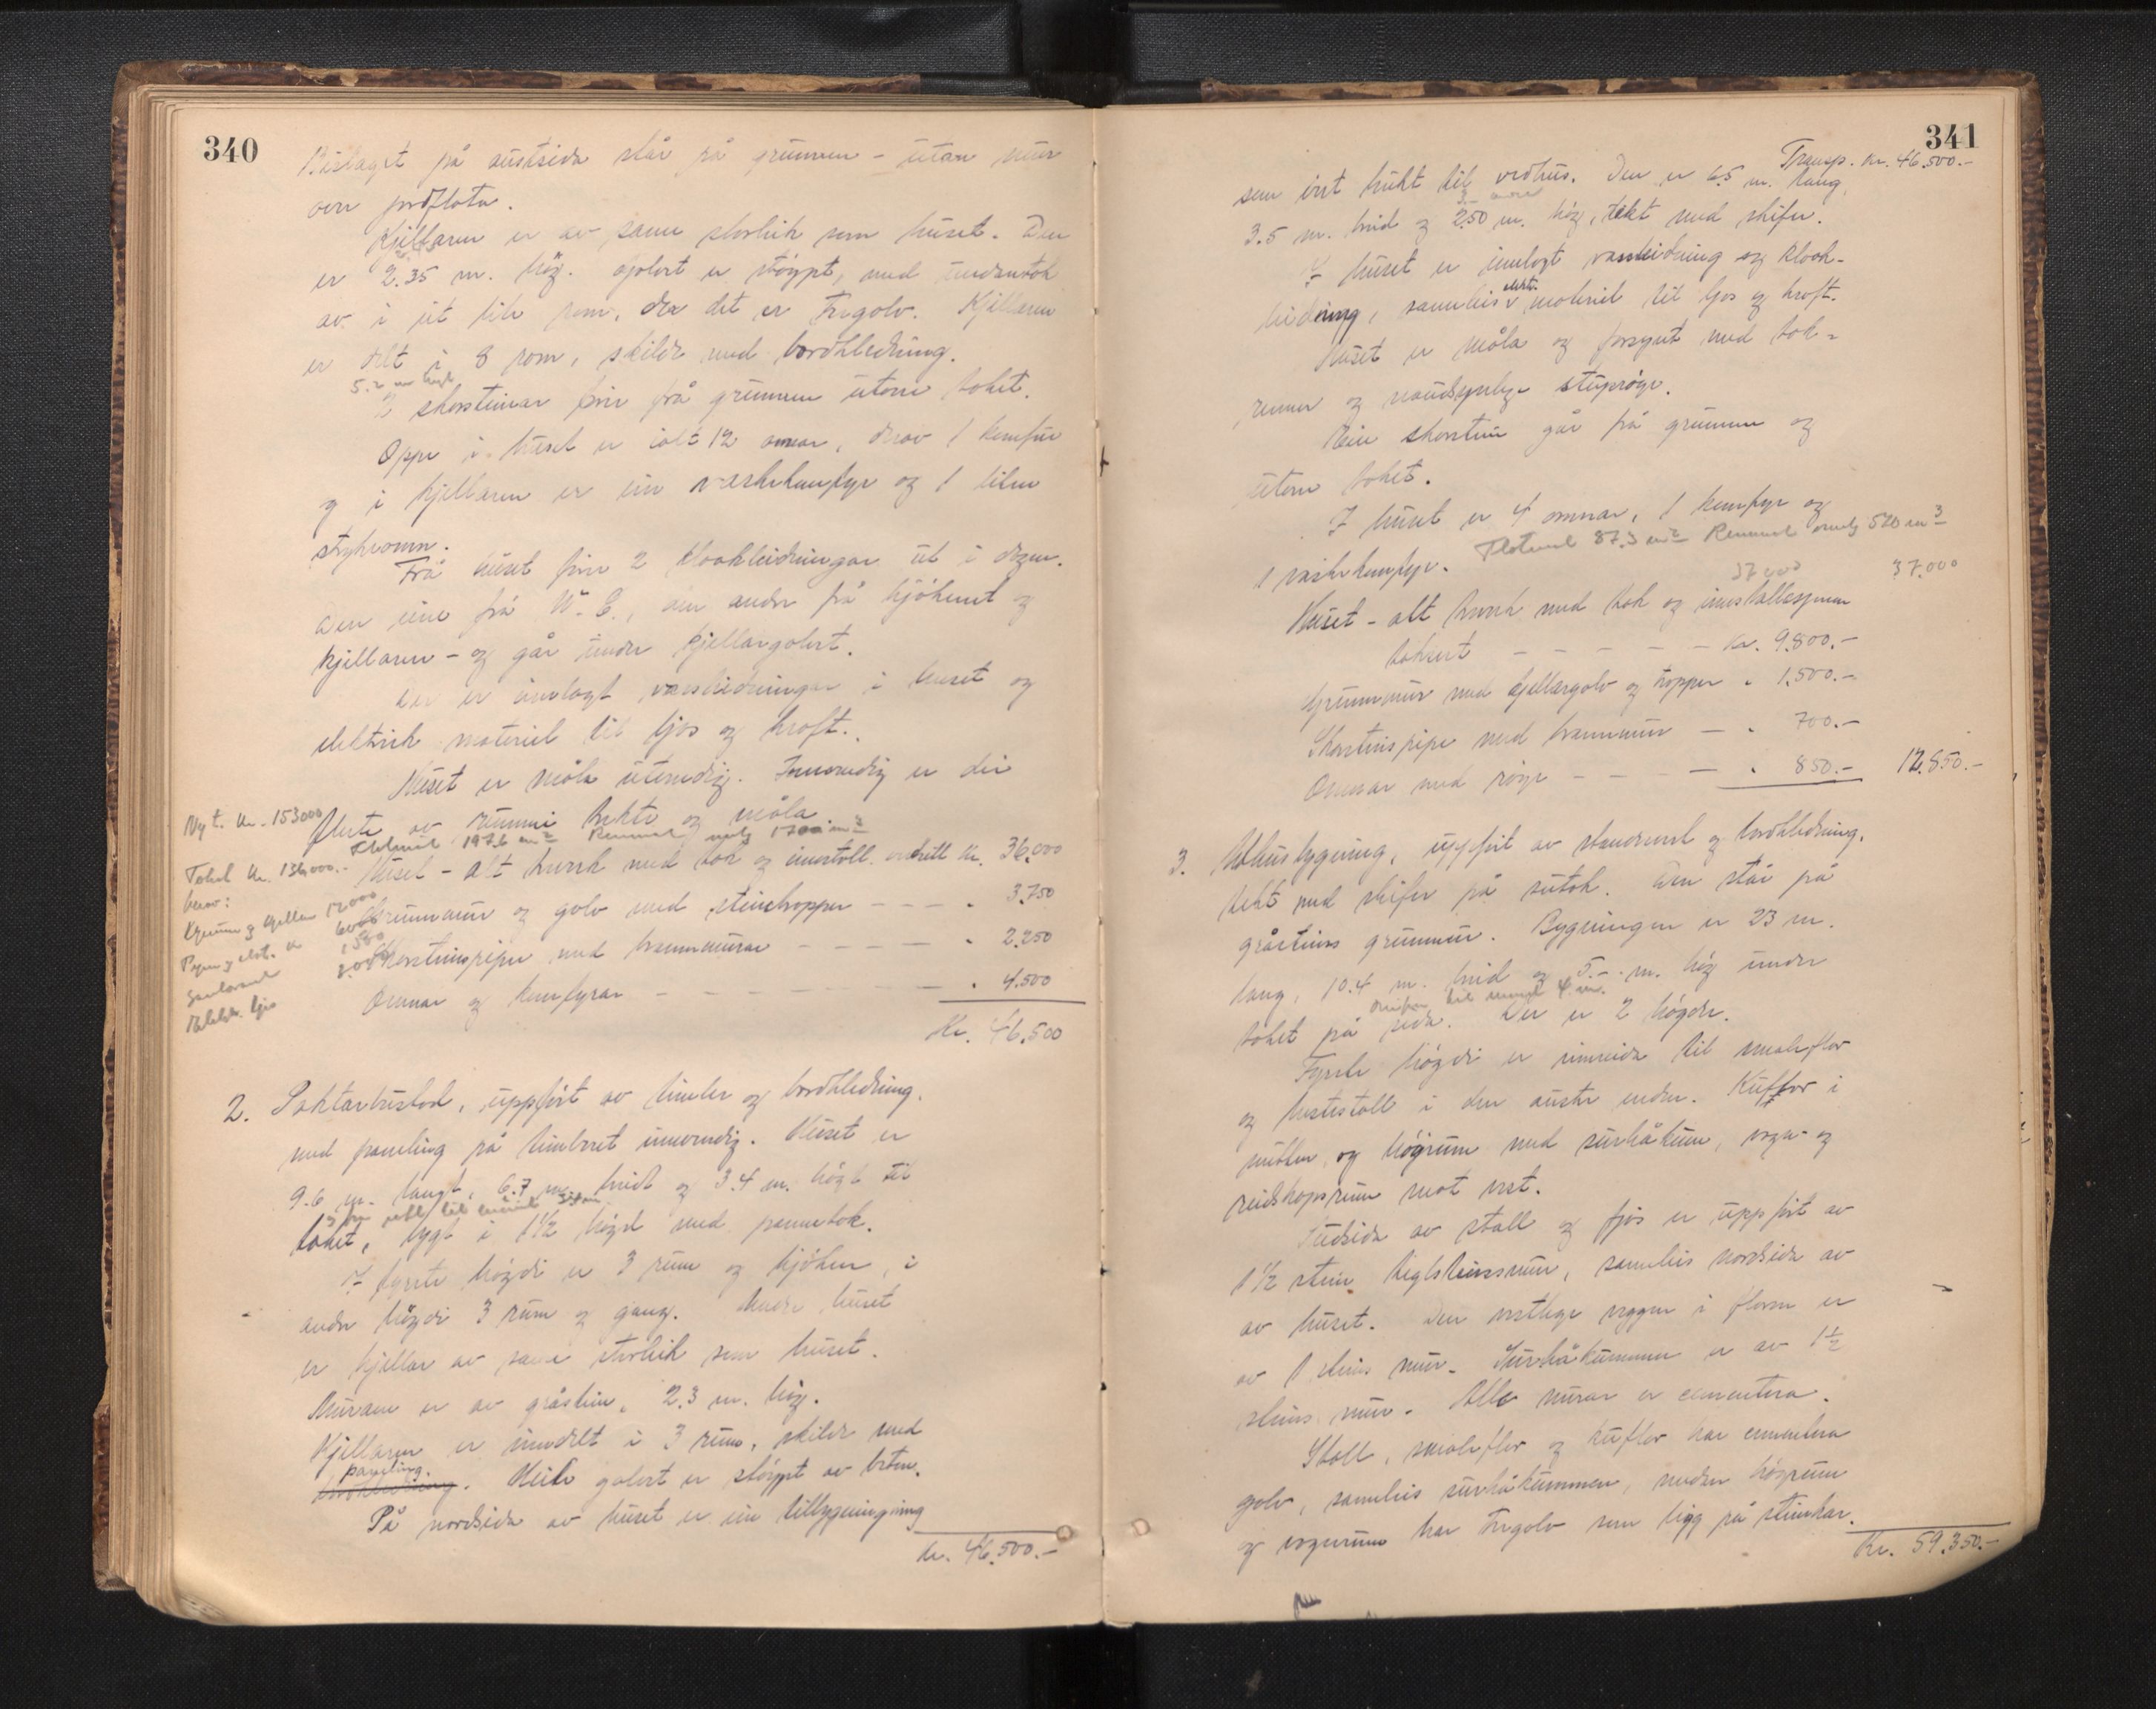 340
på austsida står på grunnen - utan mur
over jordflata.
Kjellaren er av same storleik som huset. Den
er 2.35 m. høg. Golvet er støypt, med undantak
av i eit lite rom, der det er tregolv. Kjellaren
er delt i 8 rom, skilde med bordkledning.
2 skorsteinar fører frå grunnen utom taket.
Oppe i huset er ialt 12 omnar, derav 1 komfur
og i kjellaren er ein vaskekomfyr og 1 liten
strykeomn.
Frå huset fører 2 kloakleidningar ut i dogen.
Den eine frå W.C., den andre frå kjøkenet og
kjellaren - og går under kjellargolvet.
Der er innlagt vassleidningar i huset og
elektrisk materiel til ljos og kraft.
Huset er måla utvendig. Innvendig er dei
fleste av rummi trekte og måla.
Flateinnh. 197.6 m² Rominnh. 1700 m³
Ny t. Kr. 153000
Huset - alt treverk med tak og innstall. Kr. 36.000
Takst Kr. 136000.-
herav:
Grunnmur og golv med steintropper - - - " 3.750
Skorsteinspipur med brannmurar - - - - " 2.250
Omnar og komfyrar - - - - - - " 4.500
Kr. 46.500
2. Paktarbustad, uppført av timber og bordkledning,
med paneling på timbret innvendig. Huset er
9.6 m. langt, 6.7 m. breidt og 3.4 m. høgt til
taket, bygt i 1½ høgd med pannetak.
I fyrste høgdi er 3 rum og kjøken, i
andre høgdi 3 rum og gang. Under huset
er kjellar av same storleik som huset.
Murane er av gråstein, 2.3 m. høg.
Kjellaren er inndelt i 3 rum, skilde med
paneling.
Heile golvet er støypt av beton.
På nordsida av huset er ein tilbygningning
Kr. 46.500.-
341
Transp. Kr. 46.500.-
som vert brukt til vedhus. Den er 6.5 m. lang,
3.5 m. breid og 2.50 m. høg, tekt med skifer.
I huset er innlagt vassleidning og kloak-
leidning, sameleis elektr. materiel til ljos og kraft.
Huset er måla og forsynt med tak-
renner og naudsynlege stuprøyr.
Ein skorstein går frå grunnen og
utom taket.
I huset er 4 omnar, 1 komfyr og
1 vaskekomfyr. Flateinnh. 87.3 m² Rominnh. 520 m³
37000
37.000
Huset - alt treverk med tak og innstallasjonen
taksert - - - - - Kr. 9.800.-
Grunnmur med kjellargolv og tropper " 1.500.-
Skorsteinspipe med brannmur - " 700.-
Omnar med røyr - - - - " 850.- 12.850.-
3. Uthusbygning, uppført av standverk og bordkledning,
tekt med skifer på sutak. Den står på
gråsteins grunnmur. Bygningen er 23 m.
lang, 10.4 m. breid og 5.- m. høg under
taket på sida. Der er 2 høgder.
Fyrste høgdi er innreida til smaleflor
og hestestall i den austre enden. Kuflor i
midten og høyrum med surhåkum, vogn- og
reidskapsrum mot vest.
Sudsida av stall og fjøs er uppført av
1½ stein teglsteinsmur, sameleis nordsida av
av huset. Den vestlege veggen i floren er
av 1 steins mur. Surhåkummen er av 1½
steins mur. Alle murar er cementera.
Stall, smaleflor og kuflor har cementera
golv, sameleis surhåkummen, medan høyrum
og vognrum har tregolv som ligg på steinkar.
Kr. 59.350.-